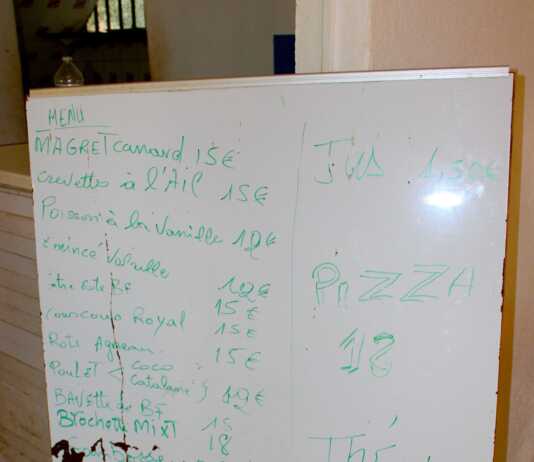 MENU
MAGRET canard 15€
crevettes à l'Ail 15€
Poisson à la Vanille 12€
émincé Volaille 12€
entre Cote BF 15€
couscous Royal 15€
Roti Agneau 15€
Poulet { coco
Catalane } 12€
BAVette de BF 15
Brochette MixT 18
Jus 1,50€
PizzA
18
Thé